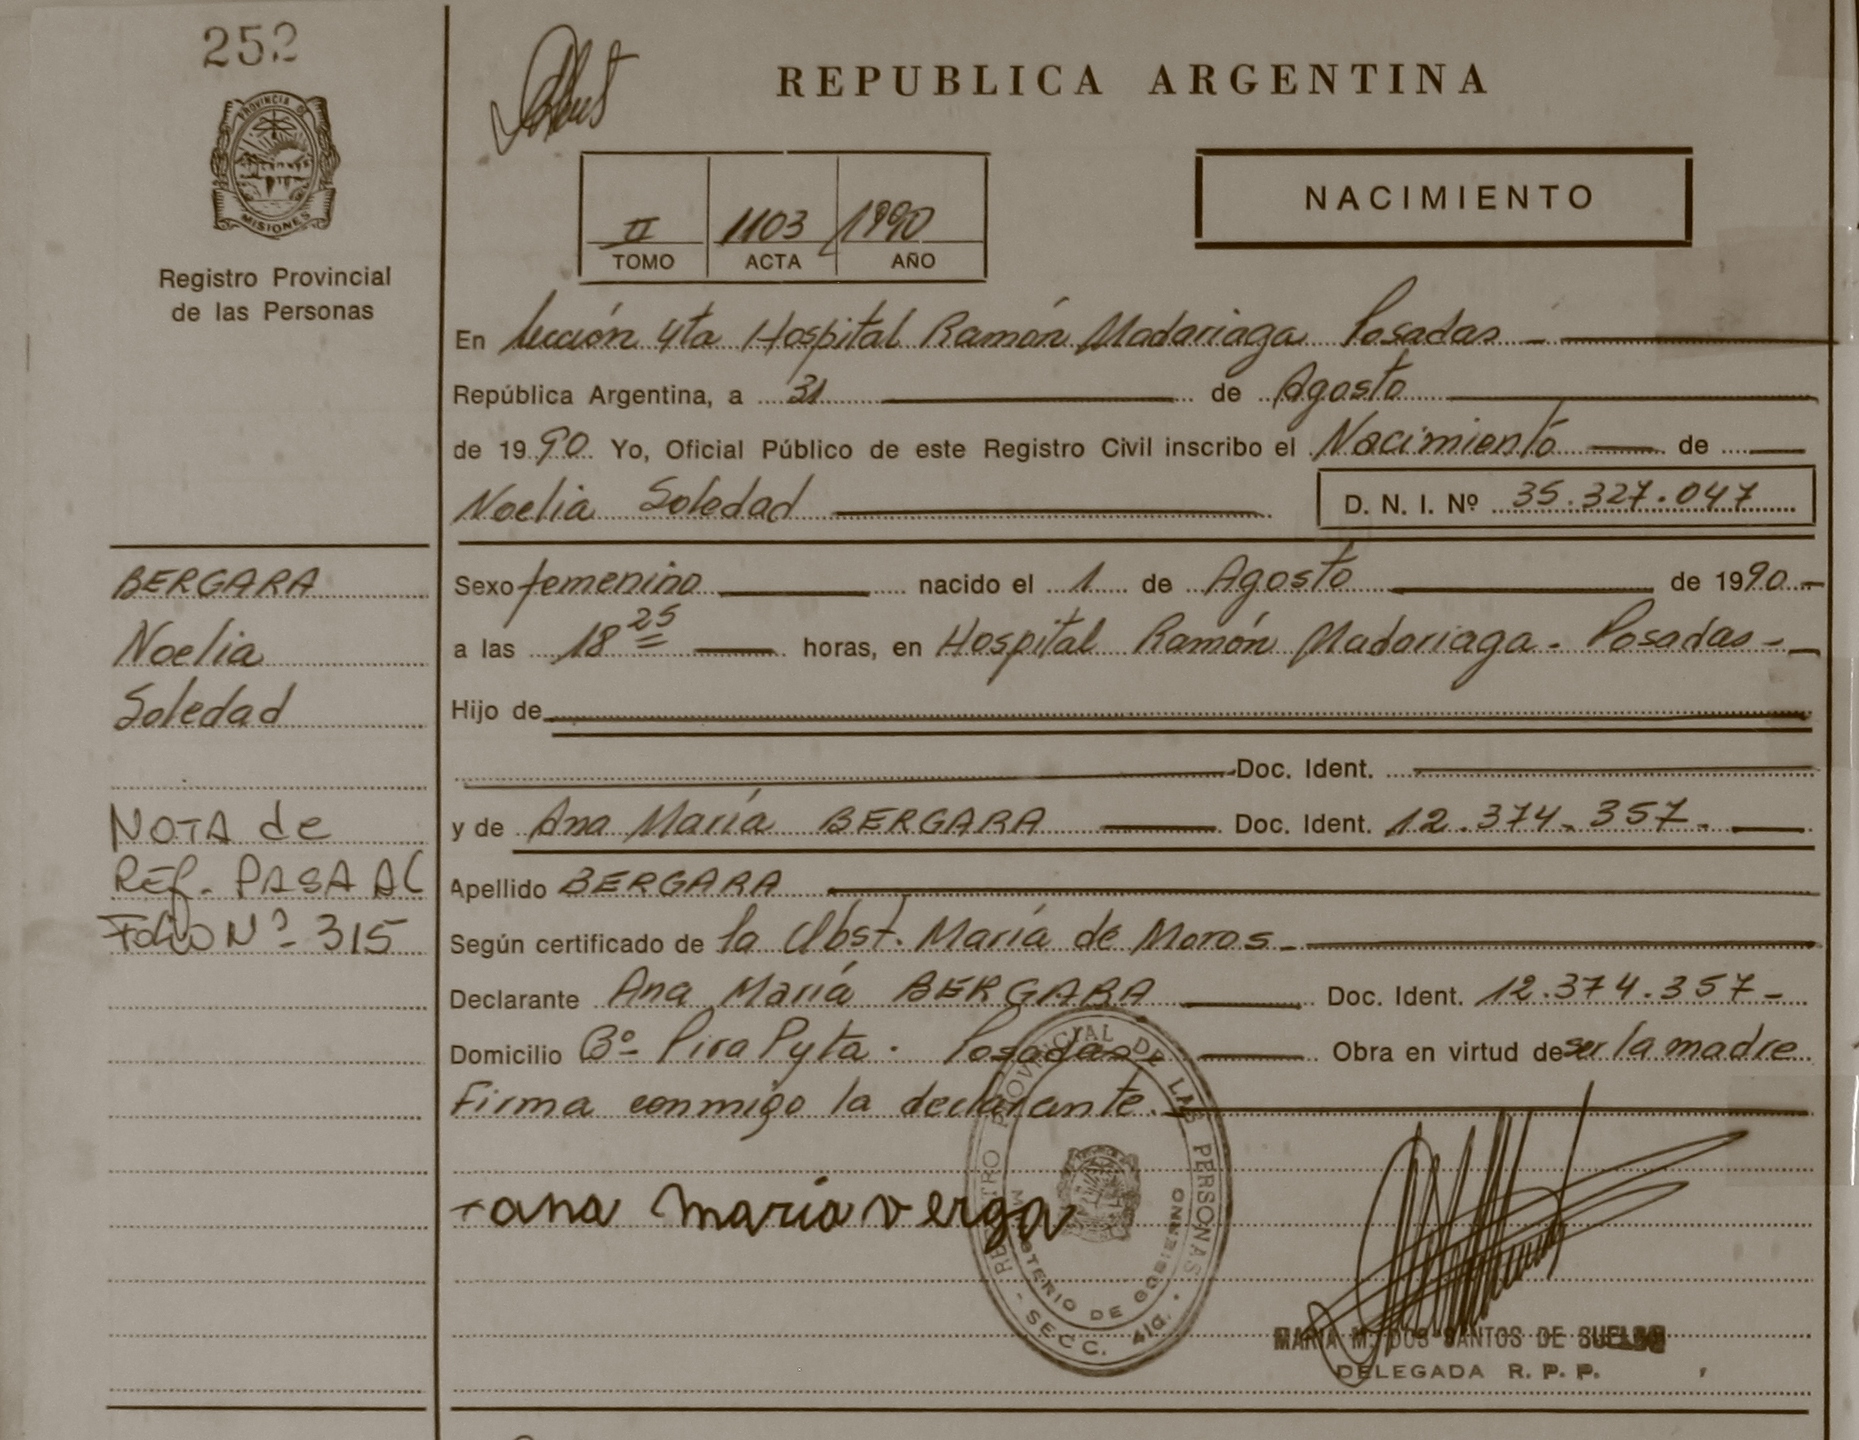 252
PROVINCIA D
MISIONES
Registro Provincial
de las Personas
REPUBLICA ARGENTINA
NACIMIENTO
II 1103 1990
TOMO ACTA AÑO
En Sección 4ta Hospital Ramón Madariaga Posadas -
República Argentina, a 31 de Agosto
de 1990 Yo, Oficial Público de este Registro Civil inscribo el Nacimiento de
Noelia Soledad D. N. I. Nº 35.327.047
BERGARA
Noelia
Soledad
NOTA de
REF. PASA AL
Folio Nº 315
Sexo femenino nacido el 1 de Agosto de 1990-
a las 18 25 horas, en Hospital Ramón Madariaga - Posadas-
Hijo de
Doc. Ident.
y de Ana María BERGARA Doc. Ident. 12.374.357-
Apellido BERGARA
Según certificado de la Obst. María de Moros-
Declarante Ana María BERGARA Doc. Ident. 12.374.357-
Domicilio Bº Pira Pyta. Posadas- Obra en virtud de ser la madre
Firma conmigo la declarante.
ana maria verga
REGISTRO PROVINCIAL DE LAS PERSONAS
MINISTERIO DE GOBIERNO
- SECC. 4ta. -
MARIA M. DOS SANTOS DE
DELEGADA R. P. P.